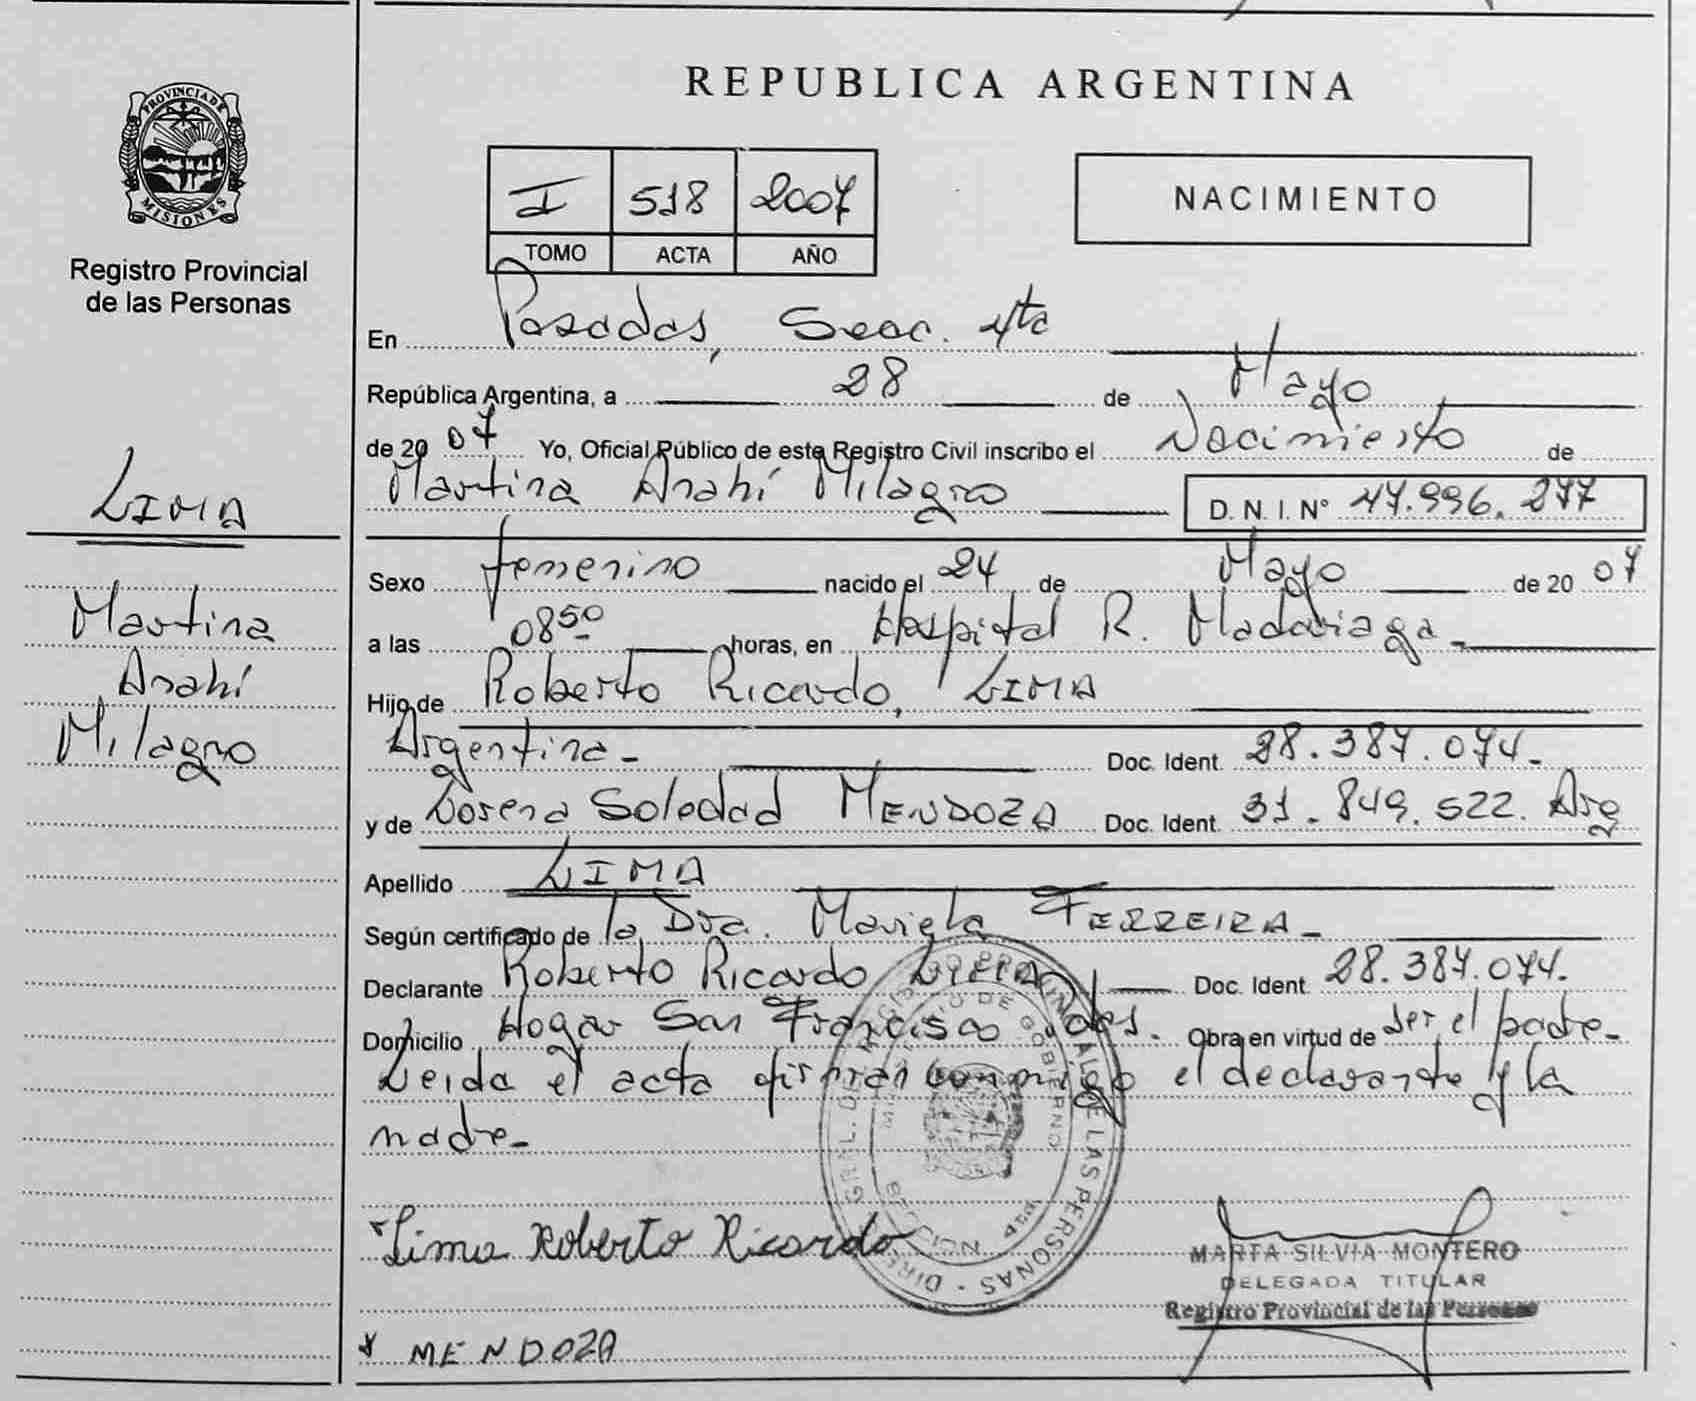 PROVINCIA DE
MISIONES
Registro Provincial
de las Personas
LIMA
Martina
Anahí
Milagro
REPUBLICA ARGENTINA
I 518 2007
TOMO ACTA AÑO
NACIMIENTO
En Posadas, Secc. 4ta
República Argentina, a 28 de Mayo
de 2007 Yo, Oficial Público de este Registro Civil inscribo el Nacimiento de
Martina Anahí Milagro D. N. I. N° 47.996.277
Sexo femenino nacido el 24 de Mayo de 2007
a las 08 50 horas, en Hospital R. Madariaga -
Hijo de Roberto Ricardo, LIMA
Argentina - Doc. Ident. 28.387.074.-
y de Lorena Soledad MENDOZA Doc. Ident. 31.849.522. Arg
Apellido LIMA
Según certificado de la Dra. Mariela FERREIRA -
Declarante Roberto Ricardo LIMA Doc. Ident. 28.387.074.
Domicilio Hogar San Francisco Pdas. Obra en virtud de ser el padre -
Leida el acta firman conmigo el declarante y la
madre -
Lima Roberto Ricardo
MENDOZA
DIRECC. GRAL. DEL REGISTRO PROVINCIAL DE LAS PERSONAS
MINISTERIO DE GOBIERNO
SECCION 4ta
MARTA SILVIA MONTERO
DELEGADA TITULAR
Registro Provincial de las Personas